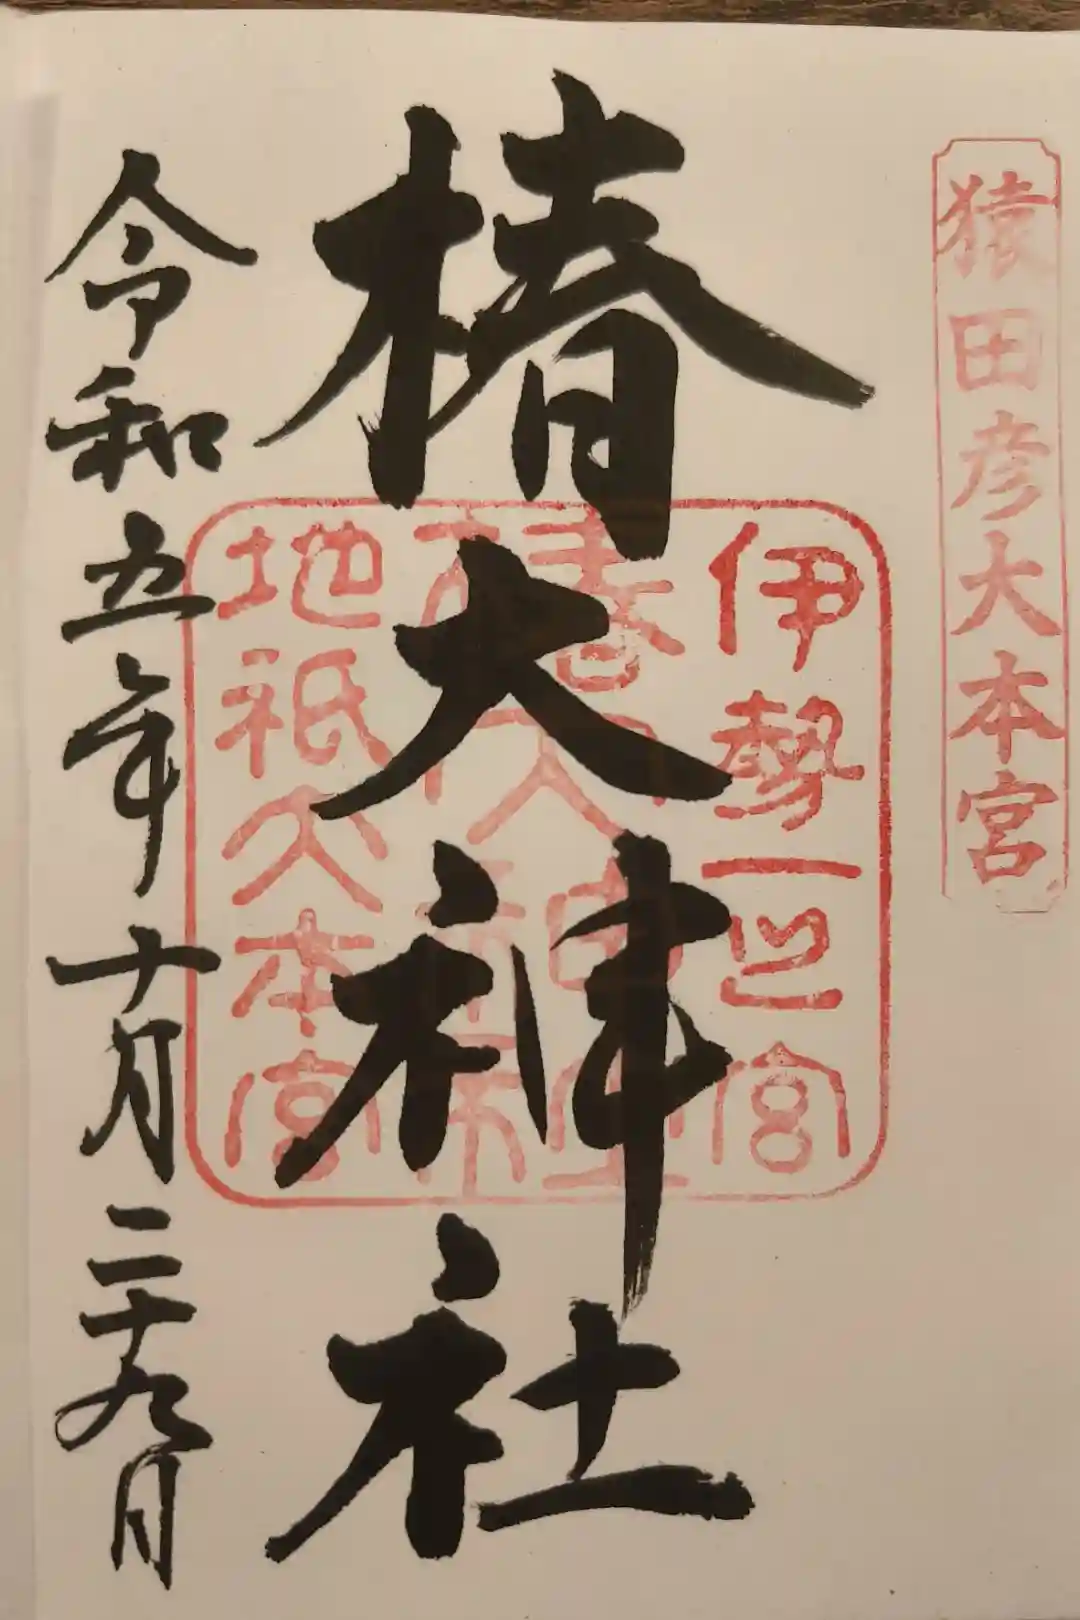 猿田彦大本宮
椿大神社
伊勢一之宮
椿大神社
地祇大本宮
令和五年十月二十九日